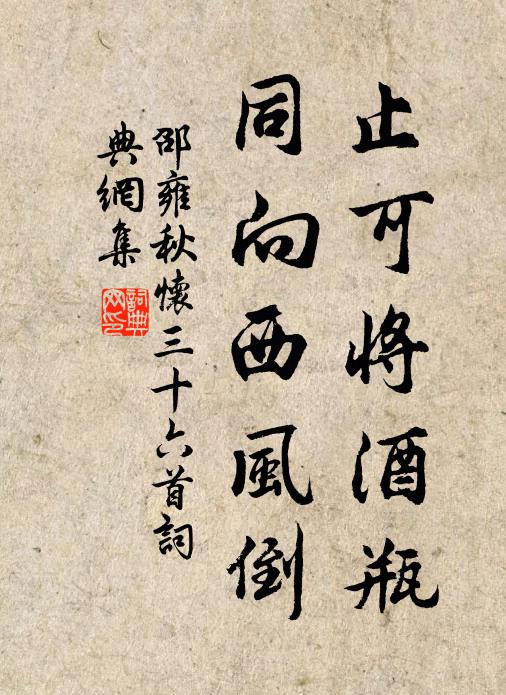 止可將酒瓶
同向西風倒
邵雍秋懷三十六首詞
典網集
詞典
网印